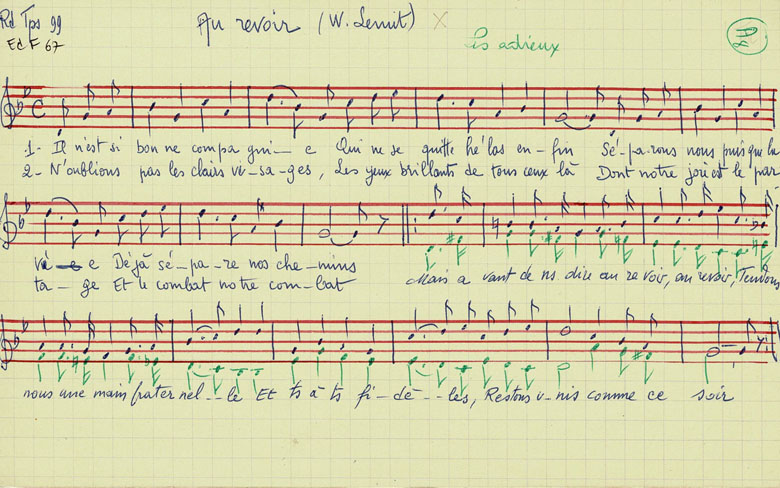 Rd Tps 99
Ed F 67
Au revoir (W. Lemit) X
Les adieux
1- Il n'est si bon ne compa gni__ e Qui ne se quitte hé'las en-fin Sé-pa-rons nous puis que la
2- N'oublions pas les clairs vi-sa-ges, Les yeux brillants de tous ceux là Dont notre joie est le par
vi e Déjà sé-pa-re nos che-mins
ta-ge Et le combat notre com-bat
Mais a vant de ns dire au re voir, au revoir, Tendons
nous une main frater nel--le Et ts à ts fi-dè--les, Restons u-nis comme ce soir